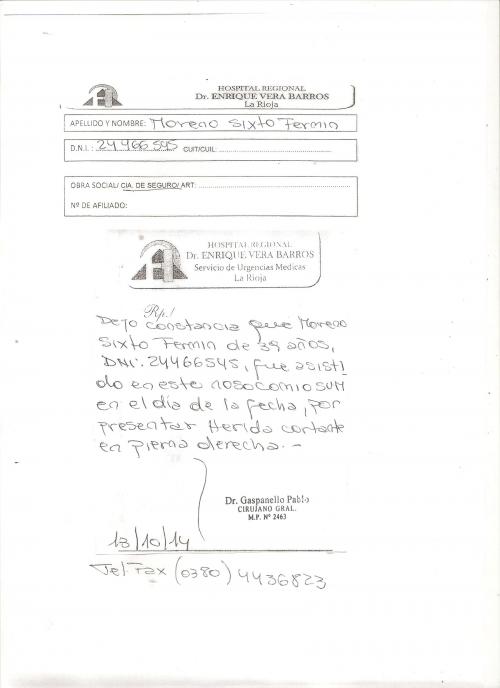 HOSPITAL REGIONAL
Dr. ENRIQUE VERA BARROS
La Rioja
APELLIDO Y NOMBRE: Moreno Sixto Fermin
D.N.I. : 24466545 CUIT/CUIL:
OBRA SOCIAL/ CIA. DE SEGURO/ ART:
Nº DE AFILIADO:
HOSPITAL REGIONAL
Dr. ENRIQUE VERA BARROS
Servicio de Urgencias Medicas
La Rioja
Rp./
Dejo constancia que Moreno
Sixto Fermin de 39 años,
DNI: 24466545, fue asisti
do en este nosocomio SUM
en el día de la fecha, por
presentar Herida cortante
en pierna derecha.-
Dr. Gaspanello Pablo
CIRUJANO GRAL.
M.P. Nº 2463
13/10/14
Tel-Fax (0380) 4436823